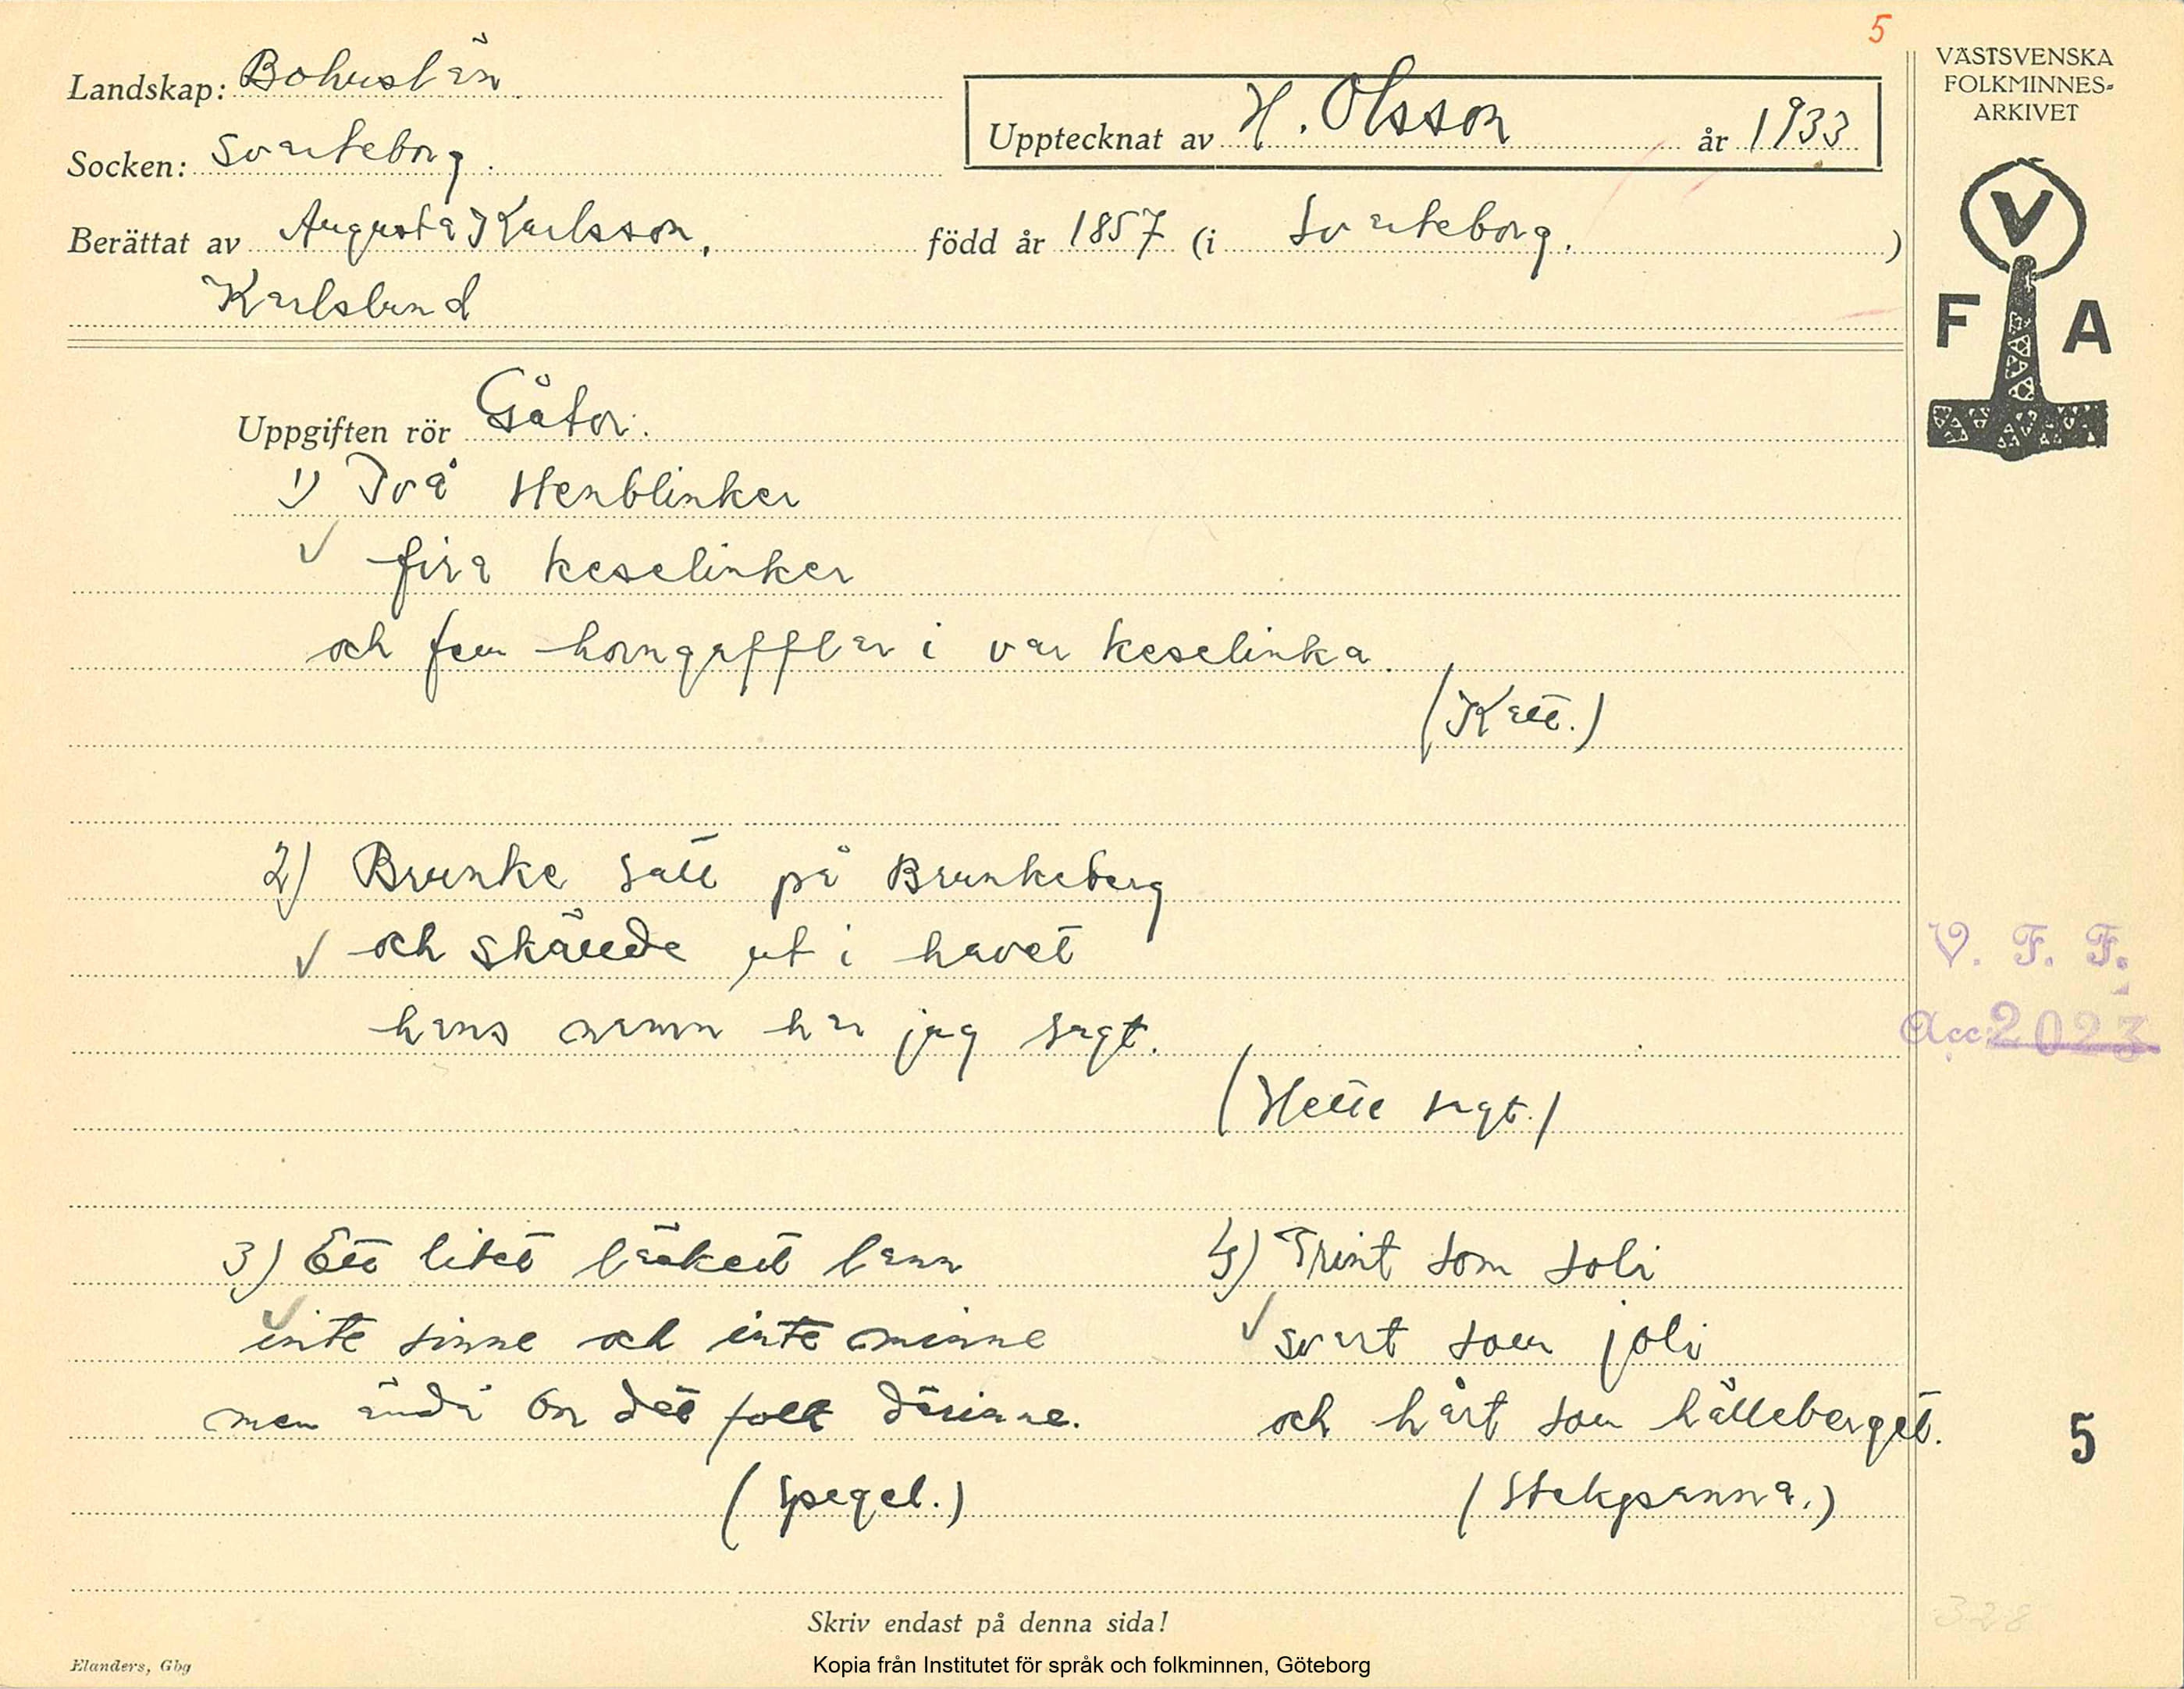 5
Landskap: Bohuslän
Socken: Svarteborg.
Upptecknat av H. Olsson år 1933
Berättat av Augusta Karlsson, född år 1857 (i Svarteborg.)
Karlslund
VÄSTSVENSKA
FOLKMINNES-
ARKIVET
V
F A
Uppgiften rör Gåtor.
1) Två stenblinker
fira keselinker
och fem horngafflar i var keselinka.
(Katt.)
2) Brunke satt på Brunkeberg
och skådde ut i havet
hans namn har jag sagt.
(Hette sagt.)
V. F. F.
Acc 2023
3) Ett litet läcket lann
inte sinne och inte minne
men ändå bor det folk därinne.
(Spegel.)
4) Trint som soli
svart som joli
och hårt som hälleberget.
(Stekpanna.)
5
328
Skriv endast på denna sida!
Elanders, Gbg
Kopia från Institutet för språk och folkminnen, Göteborg